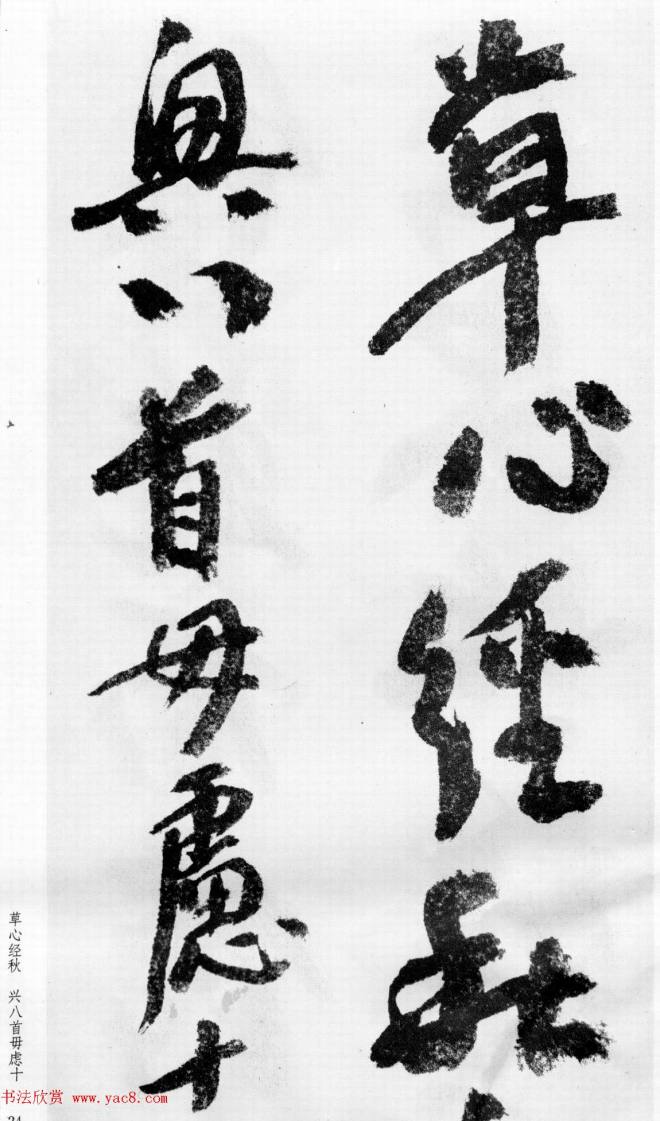 草心經秋
興八首毋慮十
草心经秋 兴八首毋虑十
书法欣赏 www.yac8.com
24